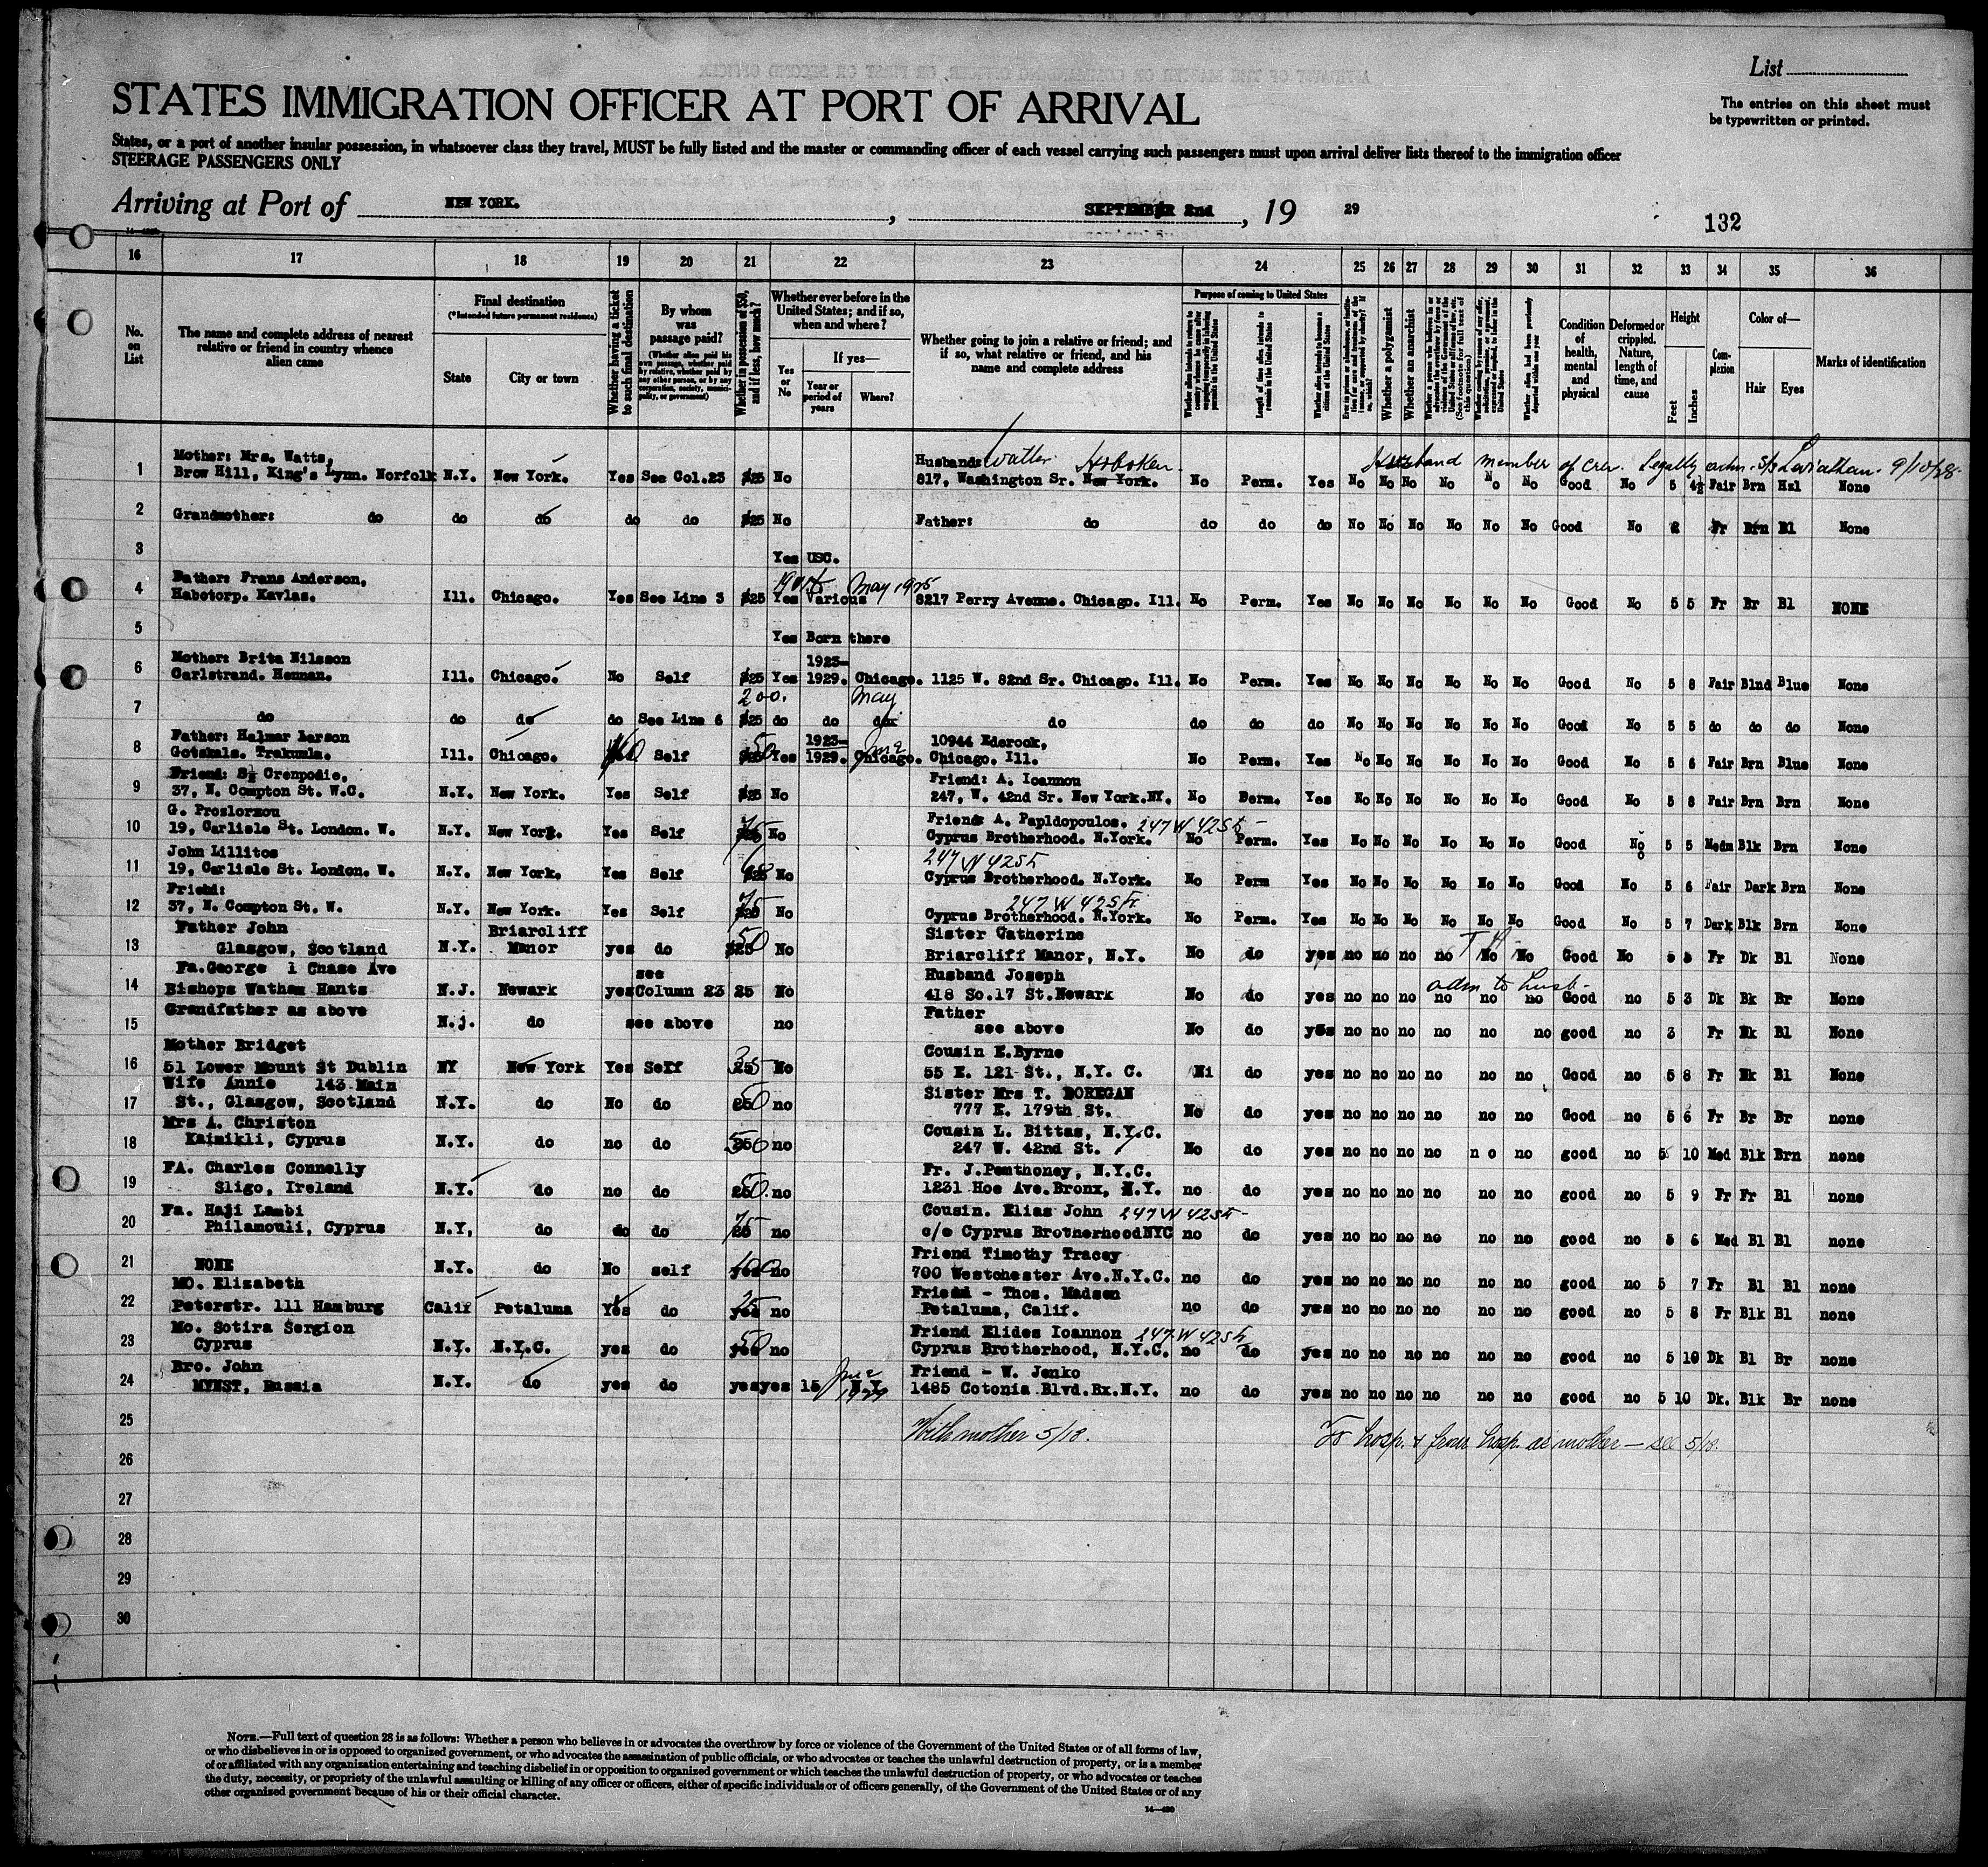 List
STATES IMMIGRATION OFFICER AT PORT OF ARRIVAL
The entries on this sheet must
be typewritten or printed.
States, or a port of another insular possession, in whatsoever class they travel, MUST be fully listed and the master or commanding officer of each vessel carrying such passengers must upon arrival deliver lists thereof to the immigration officer
STEERAGE PASSENGERS ONLY
Arriving at Port of NEW YORK. , SEPTEMBER 2nd , 19 29
132
16 17 18 19 20 21 22 23 24 25 26 27 28 29 30 31 32 33 34 35 36
No. on List
The name and complete address of nearest relative or friend in country whence alien came
Final destination
(*Intended future permanent residence)
State
City or town
Whether having a ticket to such final destination
By whom was passage paid?
(Whether alien paid his own passage, whether paid by relative, whether paid by any other person, or by any corporation, society, municipality, or government)
Whether in possession of $50, and if less, how much?
Whether ever before in the United States; and if so, when and where?
Yes or No
If yes—
Year or period of years
Where?
Whether going to join a relative or friend; and if so, what relative or friend, and his name and complete address
Purpose of coming to United States
Length of time alien intends to remain in the United States
Whether alien intends to become a citizen of the United States
Whether a polygamist
Whether an anarchist
Condition of health, mental and physical
Deformed or crippled. Nature, length of time, and cause
Height
Feet
Inches
Complexion
Color of—
Hair
Eyes
Marks of identification
Mother: Mrs. Watts, Husband: Walter Hoboken. Husband member of crew. Legally adm. S/S Leviathan 9/10/28
1 Brow Hill, King's Lynn. Norfolk N.Y. New York. Yes See Col.23 $25 No 817, Washington Sr. New York. No Perm. Yes No No No No No No Good No 5 4½ Fair Brn Hzl None
2 Grandmother: do do do do do $25 No Father: do do do do No No No No No No Good No 2 Fr Brn Bl None
3 Yes USC.
Father: Frans Anderson, May 1925
4 Habotorp. Kavlas. Ill. Chicago. Yes See Line 3 $25 Yes Various 8217 Perry Avenue. Chicago. Ill. No Perm. Yes No No No No No No Good No 5 5 Fr Br Bl NONE
5 Yes Born there
Mother: Brita Nilsson 1923-
6 Carlstrand. Hennan. Ill. Chicago. No Self $25 Yes 1929. Chicago. 1125 W. 82nd Sr. Chicago. Ill. No Perm. Yes No No No No No No Good No 5 8 Fair Blnd Blue None
200. May
7 do do do do See Line 6 $25 do do do do do do do No No No No No No Good No 5 5 do do do None
Father: Halmar Larson 1923- June 10944 Ederook,
8 Gotskals. Trakumla. Ill. Chicago. No Self 50 Yes 1929. Chicago. Chicago. Ill. No Perm. Yes No No No No No No Good No 5 6 Fair Brn Blue None
Friend: S. Grenpodie, Friend: A. Ioannou
9 37, N. Compton St. W.C. N.Y. New York. Yes Self $25 No 247, W. 42nd Sr. New York.NY. No Perm. Yes No No No No No No Good No 5 8 Fair Brn Brn None
G. Proslormou Friend: A. Papldopoulos. 247 W 42 St
10 19, Carlisle St. London. W. N.Y. New York. Yes Self 75 No Cyprus Brotherhood. N.York. No Perm. Yes No No No No No No Good No 5 5 Medm Blk Brn None
John Lillitos 247 W 42 St
11 19, Carlisle St. London. W. N.Y. New York. Yes Self 60 No Cyprus Brotherhood. N.York. No Perm Yes No No No No No No Good No 5 6 Fair Dark Brn None
Friend: 247 W 42 St
12 37, N. Compton St. W. N.Y. New York. Yes Self 75 No Cyprus Brotherhood. N.York. No Perm. Yes No No No No No No Good No 5 7 Dark Blk Brn None
Father John Briarcliff Sister Catherine
13 Glasgow, Scotland N.Y. Manor yes do 50 No Briarcliff Manor, N.Y. No do yes no no no no No No Good No 5 5 Fr Dk Bl None
Fa.George 1 Chase Ave see Husband Joseph adm to husb-
14 Bishops Watham Hants N.J. Newark yes Column 23 25 No 418 So.17 St.Newark No do yes no no no no no no Good no 5 3 Dk Bk Br None
Grandfather as above Father
15 N.j. do see above no see above No do yes no no no no no no good no 3 Fr Bk Bl None
Mother Bridget Cousin E.Byrne
16 51 Lower Mount St Dublin NY New York Yes Self 35 No 55 E. 121 St., N.Y. C. Ni do yes no no no no no no Good no 5 8 Fr Bk Bl None
Wife Annie 143 Main Sister Mrs T. DOREGAN
17 St., Glasgow, Scotland N.Y. do No do 50 no 777 E. 179th St. No do yes no no no no no no Good no 5 6 Fr Br Br none
Mrs A. Christon Cousin L. Bittas, N.Y.C.
18 Kaimikli, Cyprus N.Y. do no do 50 no 247 W. 42nd St. No do yes no no no no n o no good no 5 10 Med Blk Brn none
FA. Charles Connelly Fr. J.Penthoney, N.Y.C.
19 Sligo, Ireland N.Y. do no do 50 no 1231 Hoe Ave.Bronx, N.Y. no do yes no no no no no no good no 5 9 Fr Fr Bl none
Fa. Haji Lambi Cousin. Elias John 247 W 42 St
20 Philamouli, Cyprus N.Y, do do do 75 no c/o Cyprus BrotherhoodNYC no do yes no no no no no no good no 5 6 Med Bl Bl none
Friend Timothy Tracey
21 NONE N.Y. do No self 100 no 700 Westchester Ave.N.Y.C. no do yes no no no no no no good no 5 7 Fr Bl Bl none
MO. Elizabeth Friend - Thos. Madsen
22 Peterstr. 111 Hamburg Calif Petaluma Yes do 25 no Petaluma, Calif. no do yes no no no no no no good no 5 8 Fr Blk Bl none
Mo. Sotira Sergion Friend Elides Ioannon 247 W 42 St
23 Cyprus N.Y. N.Y.C. yes do 50 no Cyprus Brotherhood, N.Y.C. no do yes no no no no no no good no 5 10 Dk Bl Br none
Bro. John June 1929 Friend - W. Jenko
24 MYNST, Russia N.Y. do yes do yes yes 15 N.Y. 1485 Cotonia Blvd.Bx.N.Y. no do yes no no no no no no good no 5 10 Dk. Blk Br none
25 With mother 5/18. To hosp. & from hosp. as mother — see 5/18.
26
27
28
29
30
NOTE.—Full text of question 28 is as follows: Whether a person who believes in or advocates the overthrow by force or violence of the Government of the United States or of all forms of law,
or who disbelieves in or is opposed to organized government, or who advocates the assassination of public officials, or who advocates or teaches the unlawful destruction of property, or is a member
of or affiliated with any organization entertaining and teaching disbelief in or opposition to organized government or which teaches the unlawful destruction of property, or who advocates or teaches
the duty, necessity, or propriety of the unlawful assaulting or killing of any officer or officers, either of specific individuals or of officers generally, of the Government of the United States or of any
other organized government because of his or their official character.